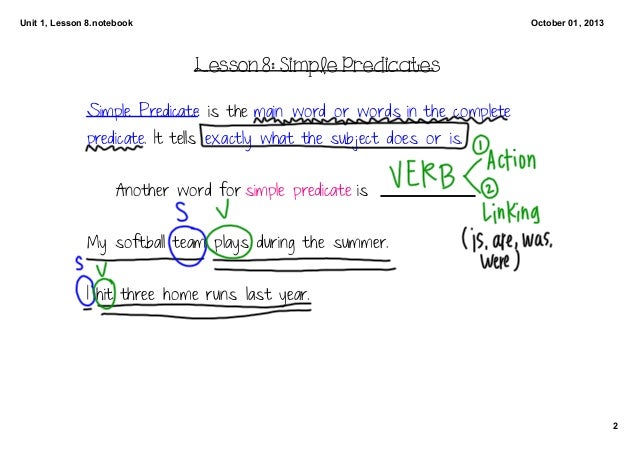 Unit 1, Lesson 8.notebook October 01, 2013
Lesson 8: Simple Predicates
Simple Predicate is the main word or words in the complete
predicate. It tells exactly what the subject does or is.
① Action
Another word for simple predicate is VERB
② Linking
(is, are, was, were)
S V
My softball team plays during the summer.
S V
I hit three home runs last year.
2